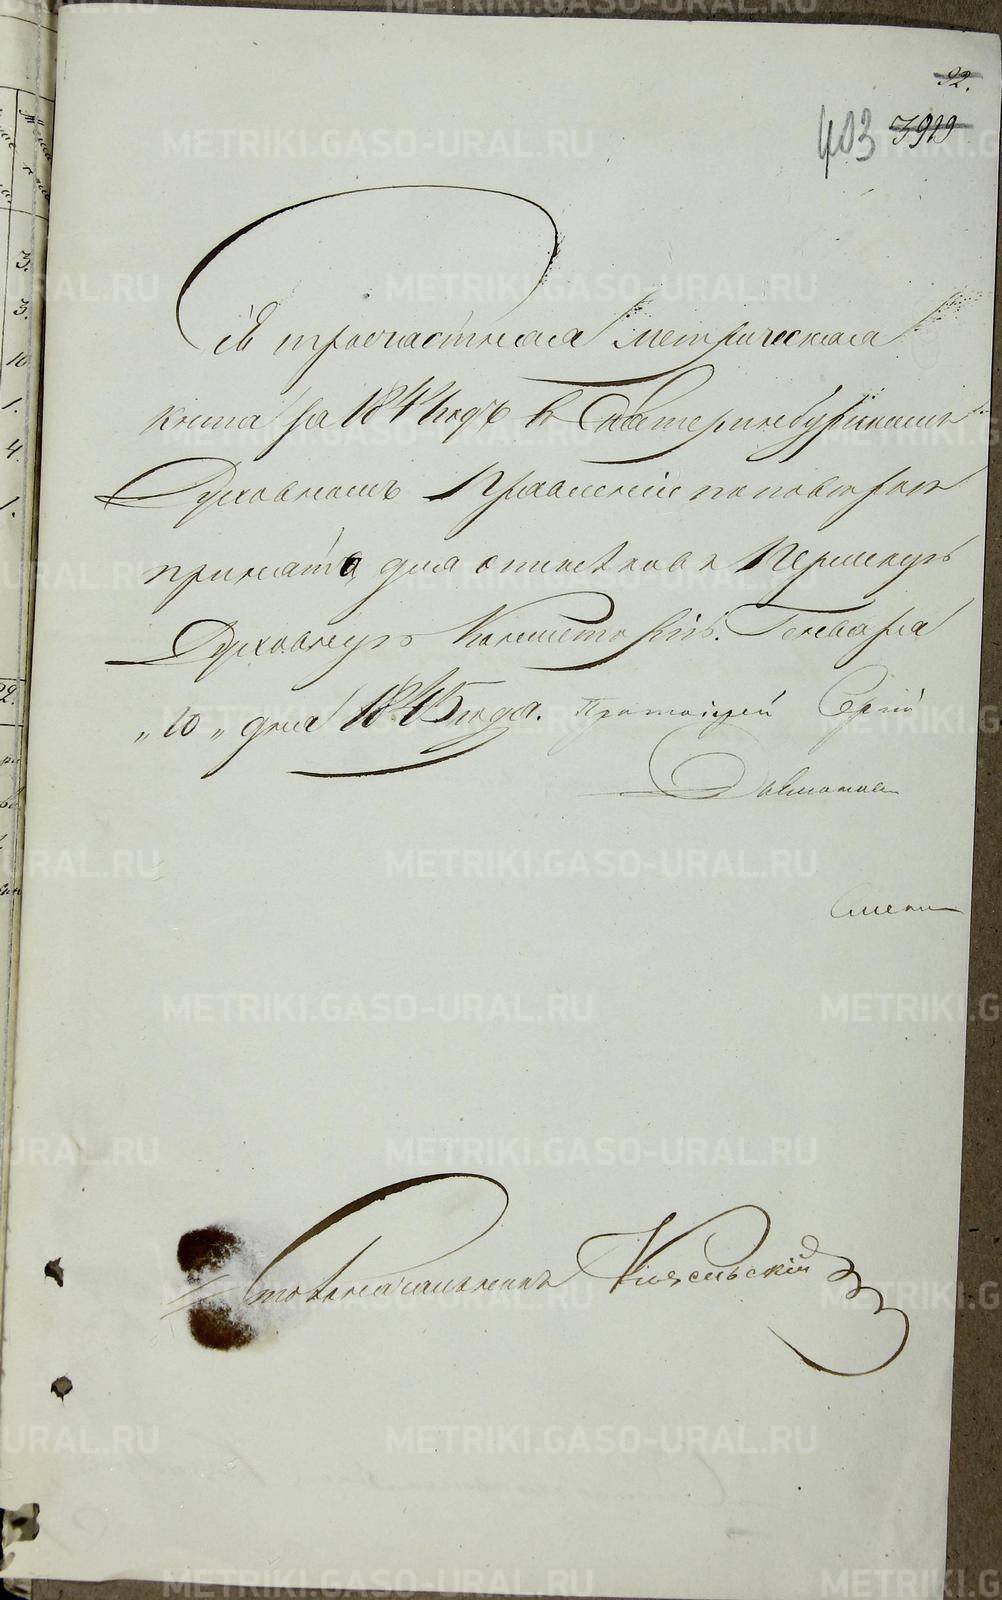 92.
403 3919
Сія троечастная метрическая
книга за 1844 годъ въ Екатеринбургскомъ
Духовномъ Правленіи по поверкѣ
принята для отсылки въ Пермскую
Духовную Консисторію. Генваря
„10„ дня 1845 года. Протоіерей Сергій
Столоначальникъ
METRIKI.GASO-URAL.RU